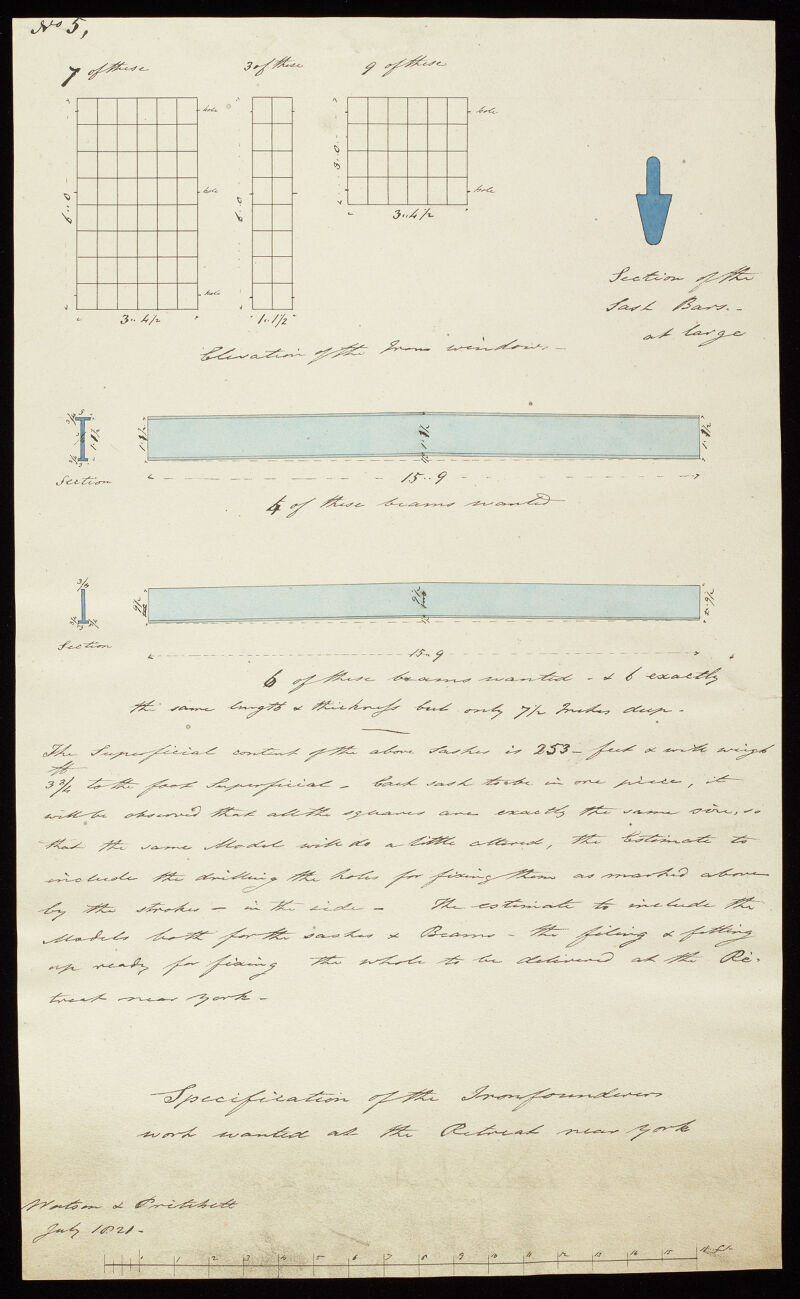 No 5,
7 of these
3 of these
9 of these
hole
hole
hole
6..0
3..4 1/2
6..0
1..1 1/2
3..0
hole
hole
3..4 1/2
Section of the
Sash Bars.-
at large
Elevation of the Iron windows.-
Section
15..9
4 of these beams wanted
3/4
9 1/2
Section
15..9
6 of these beams wanted - & 6 exactly
the same length & thickness but only 7 1/2 Inches deep.-
The Superficial content of the above Sashes is 253 - feet & with weigh
3 3/4 lb to the foot Superficial - Each sash to be in one piece, it
will be observed that all the squares are exactly the same size, so
that the same Model will do a little altered, the Estimate to
include the drilling the holes for fixing them as marked above
by the strokes - in the side - The estimate to include the
Models both for the sashes & Beams - the filing & fitting
up ready for fixing the whole to be delivered at the Re-
treat near York -
Specification of the Ironfounderers
work wanted at the Retreat near York
Watson & Pritchett
July 1821-
1 2 3 4 5 6 7 8 9 10 11 12 13 14 15